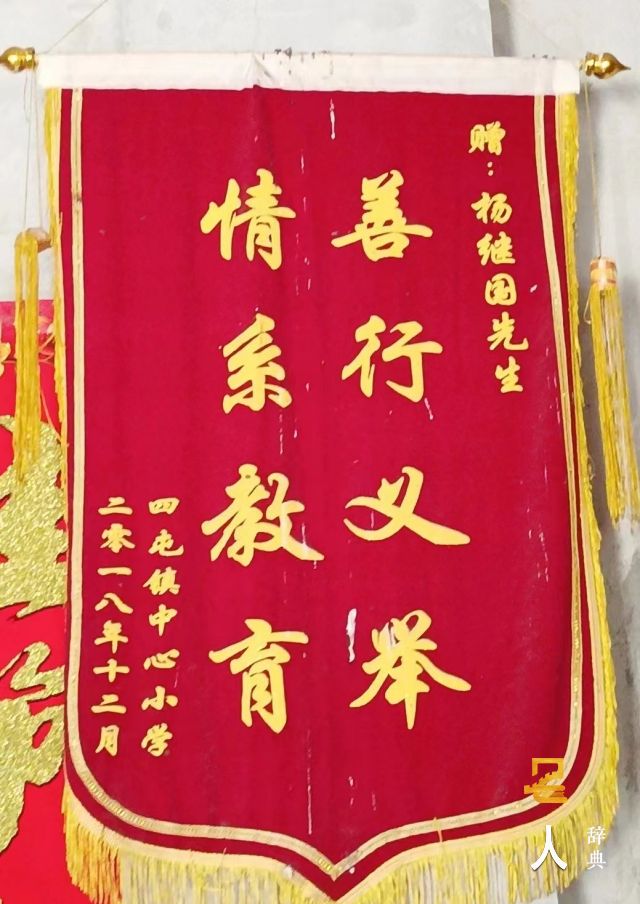 赠：杨继国先生
善行义举
情系教育
四屯镇中心小学
二零一八年十二月
人
辞典